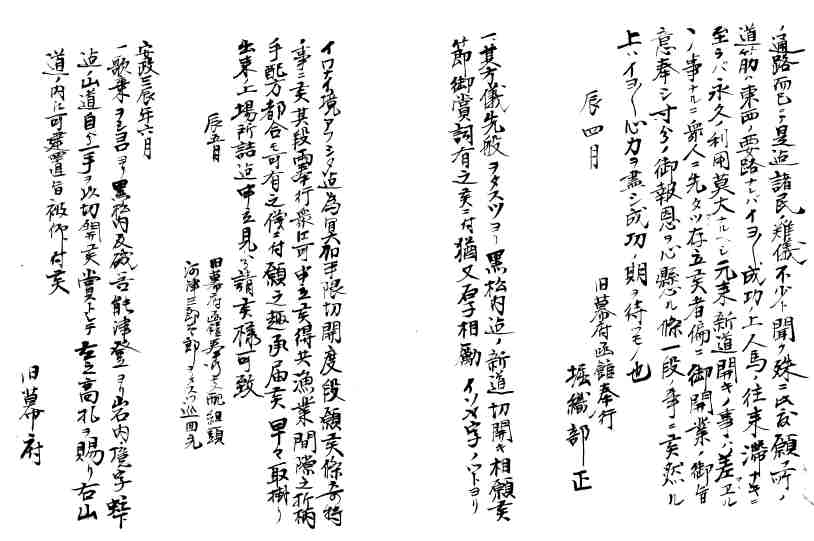 通路而已ニテ是迄諸民ノ難儀不少ト聞ク殊ニ此度願フ所ノ
道筋ハ東西ノ要路ナレバイヨ〳〵成功ノ上人馬ノ往来滞ナキニ
至ラバ永久ノ利用莫大ナルベシ元来新道開キノ事ハ差ユル
ノ事ナルニ衆人ニ先タツ存立候者偏ニ御開業ノ御旨
意奉シ寸分ノ御報恩ヲ心懸ル條一段ノ事ニ候然ル
上ハイヨ〳〵心力ヲ盡シ成功ノ期ヲ待ツモノ也
旧幕府函館奉行
辰四月
堀織部正
一其方儀先般ヲタスツヨリ黒松内迄ノ新道切開キ相願候
節御賞詞有之候ニ付猶又厚ク相勵イソヤ字ノットヨリ
イロナイ境アフシタ迄為冥加手限切開度段願候條奇特
ノ事ニ候其段両奉行衆江可申立候得共漁業間隙之折柄
手配方都合モ可有之儀ニ付願之趣承届候早々取掛リ
出来上場所詰迄申立見分請候様可致
辰五月
旧幕府函館奉行支配組頭
河津三郎太郎ヲタスツ巡回先
安政三辰年六月
一歌棄ヲシヨロヨリ黒松内及磯谷能津登ヨリ岩内境字
迄山道自分一手ヲ以切開候賞トシテ左之高札ヲ賜リ右山
道ノ内江可建置旨被仰付候
旧幕府